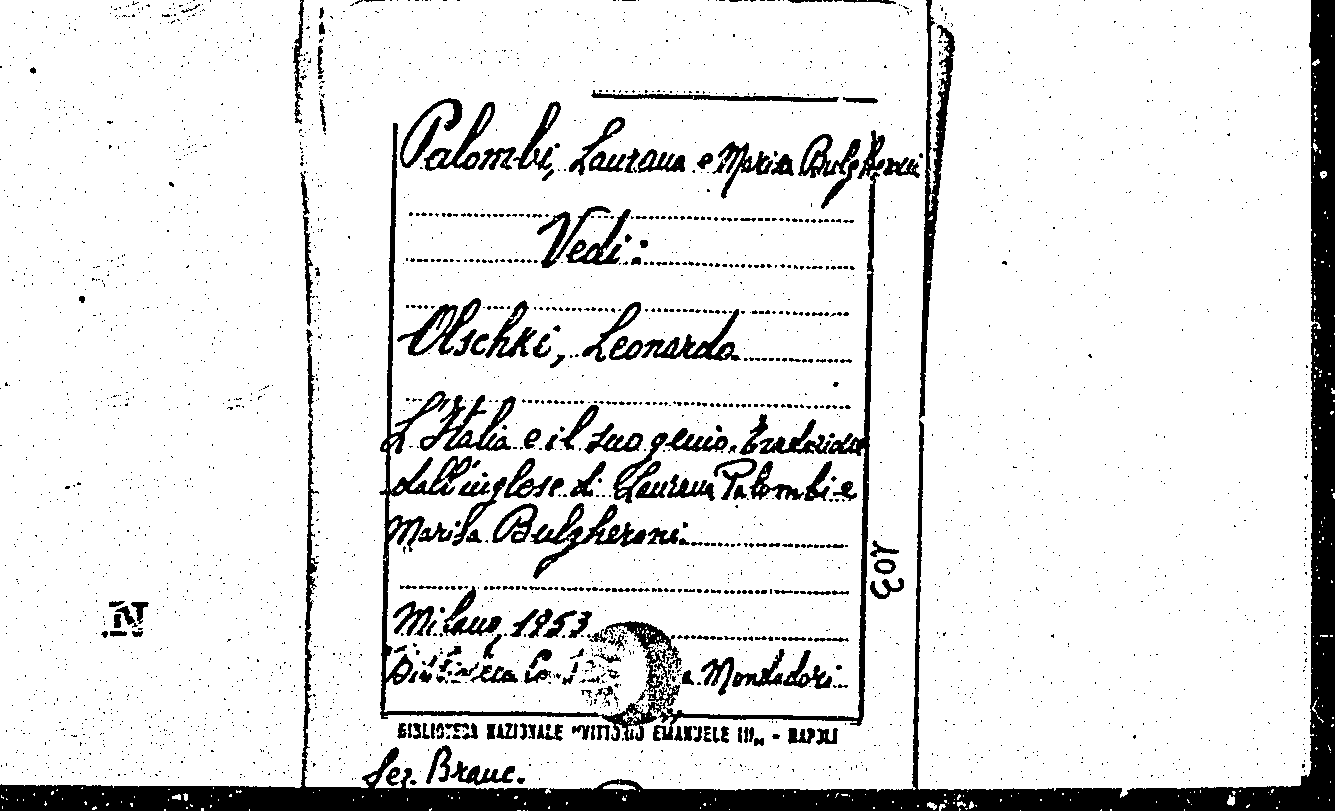 Palombi, Laurana e Marisa Bulgheroni
Vedi:
Olschki, Leonardo
L'Italia e il suo genio. Traduzione
dall'inglese di Laurana Palombi e
Marisa Bulgheroni.
Milano, 1953
Biblioteca Mondadori
BIBLIOTECA NAZIONALE "VITTORIO EMANUELE III„ - NAPOLI
Sez. Branc.
103